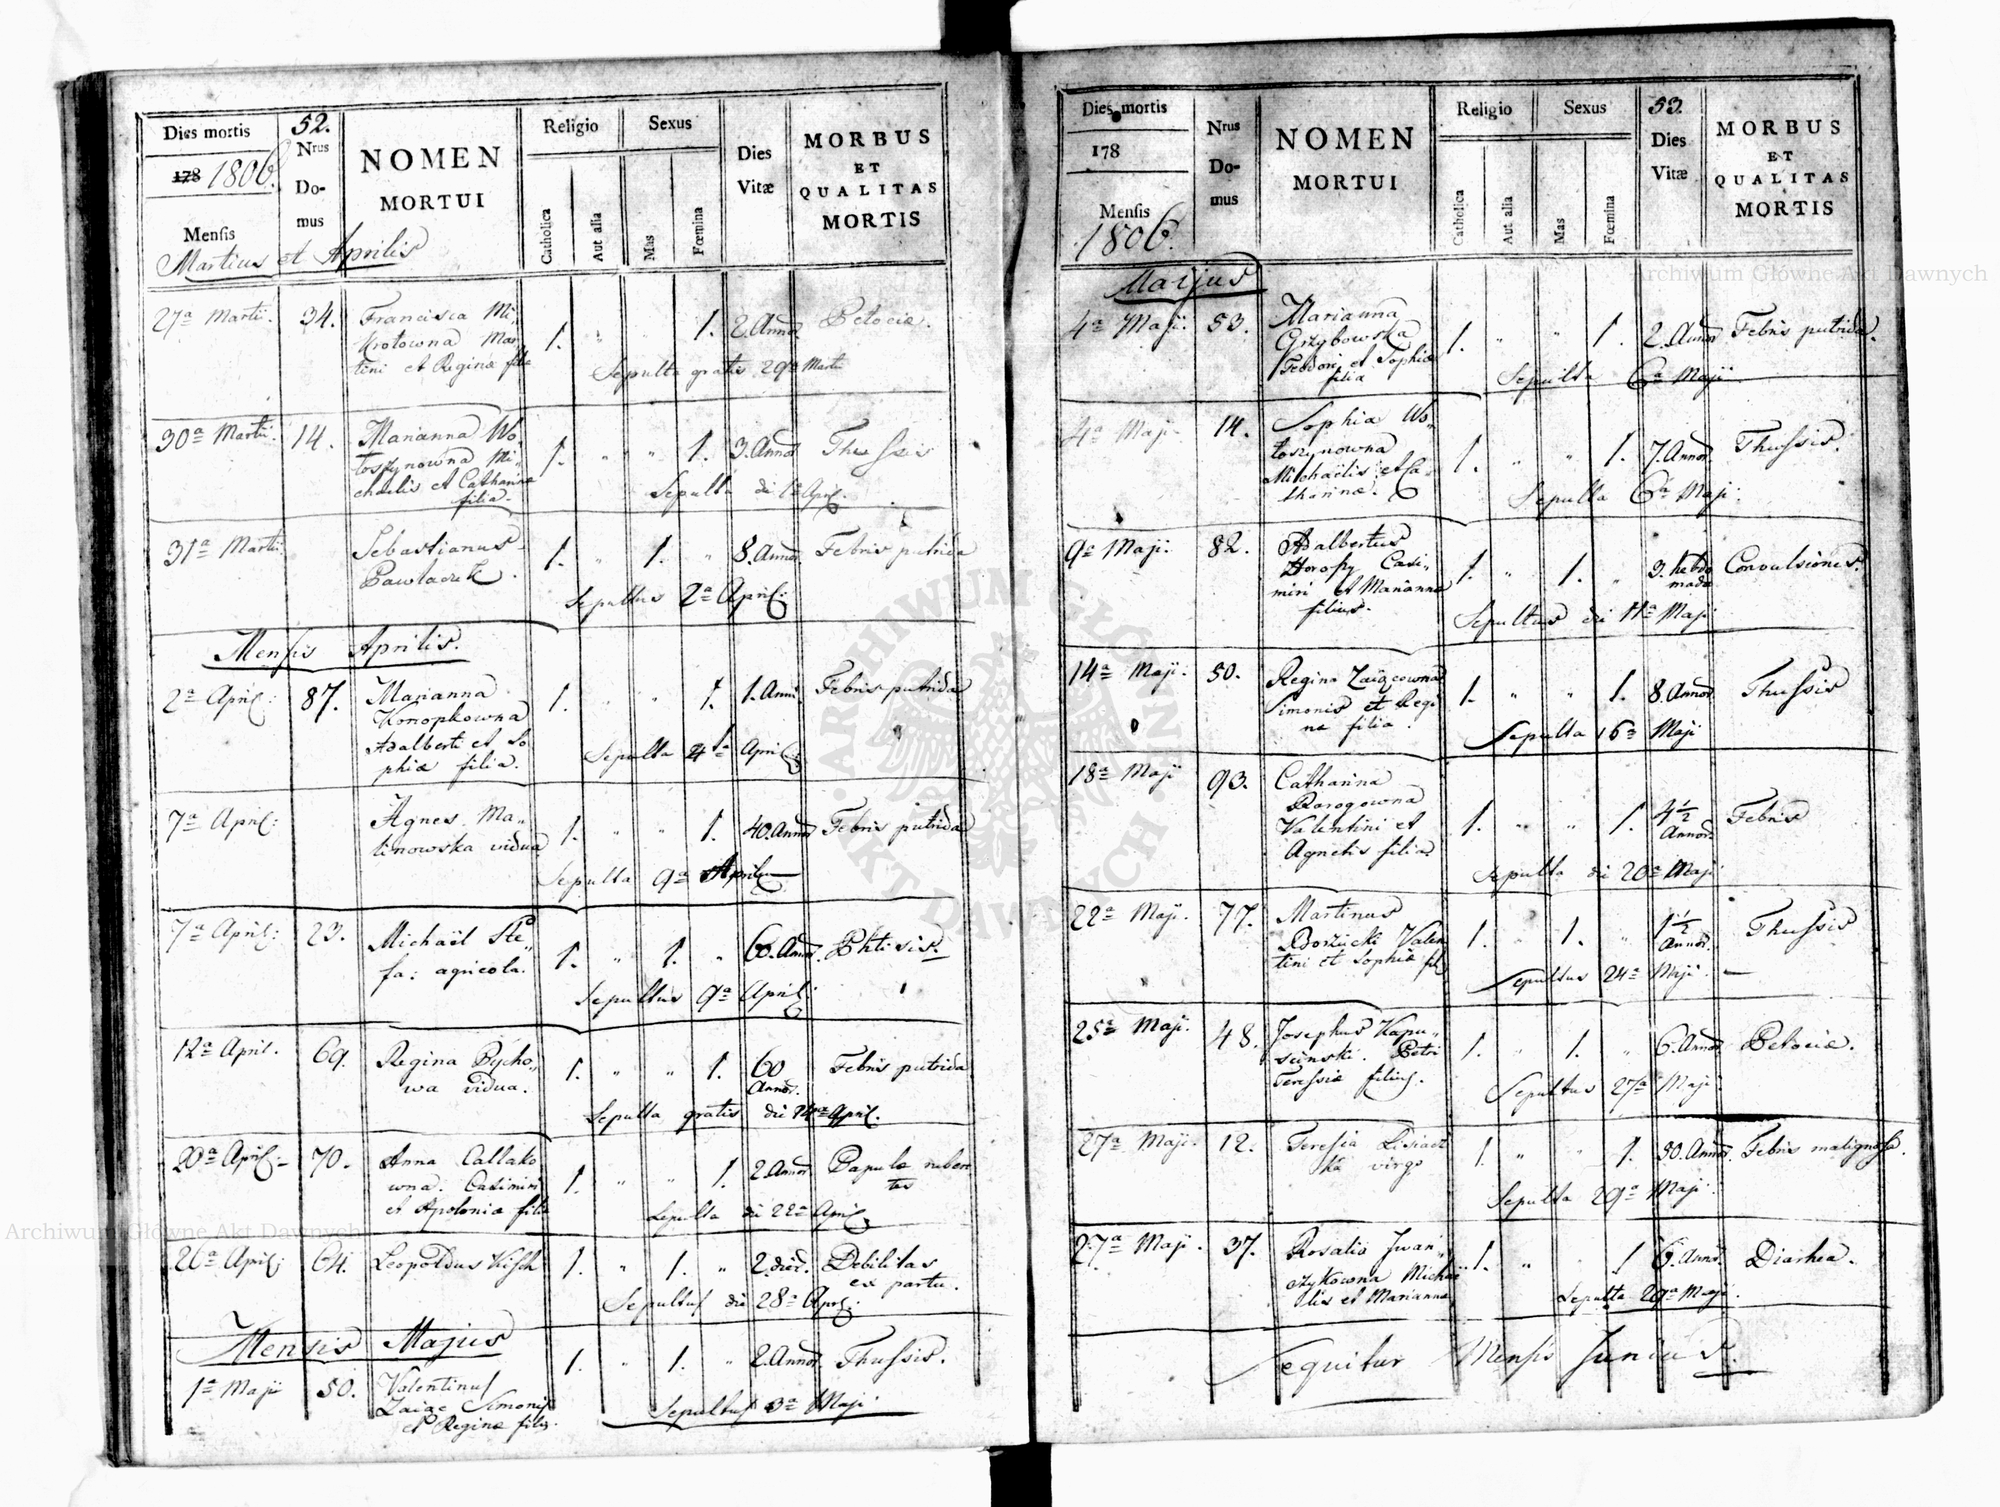 Dies mortis
178 1806.
Mensis
Martius et Aprilis
52.
Nrus
Do-
mus
NOMEN
MORTUI
Religio
Catholica
Aut alia
Sexus
Mas
Fœmina
Dies
Vitæ
MORBUS
ET
QUALITAS
MORTIS
27a Martii. 34. Francisca Mi„ 1. „ „ 1. 2. Annor. Petociæ.
krotowna Mar„
tini et Reginæ filia
Sepulta gratis 29a Martii
30a Martii 14. Marianna Wo„ 1. „ „ 1. 3. Annor. Thussis
łoszynowna Mi„
chaelis et Catharinæ
filia.
Sepulta di 1a April.
31a Martii. Sebastianus 1. „ 1. „ 8. Annor. Febris putrida
Pawłaczek.
Sepultus 2a April:
Mensis Aprilis.
2a April: 87. Marianna 1. „ „ 1. 1. Anni. Febris putrida
Konopkowna
Adalberti et So
phiæ filia.
Sepulta 4ta April:
7a April: Agnes Ma„ 1. „ „ 1. 40. Annor Febris putrida
linowska vidua
Sepulta 9a Aprilis
7a April: 23. Michaël Ste„ 1. „ 1. „ 60. Annor. Phtisis.
fa: agricola.
Sepultus 9a April:
12a April. 69. Regina Pÿcho„ 1. „ „ 1. 60 Annor. Febris putrida
wa vidua.
Sepulta gratis die 14a April.
20a April: 70. Anna Callako 1. „ „ 1. 2. Annor Papulæ ruben
wna. Casimiri tes
et Apoloniæ filia
Sepulta di 22a April
26a April: 64. Leopoldus Kisch 1. „ 1. „ 2. dier. Debilitas
ex partu.
Sepultus die 28a April:
Mensis Majus
1a Maji 50. Valentinus 1. „ 1. „ 2. Annor. Thussis.
Zaiąc Simonis
et Reginæ filius.
Sepultus 3a Maji
Dies mortis
178
Mensis
1806.
Nrus
Do-
mus
NOMEN
MORTUI
Religio
Catholica
Aut alia
Sexus
Mas
Fœmina
53.
Dies
Vitæ
MORBUS
ET
QUALITAS
MORTIS
Maijus
4a Maji. 53. Marianna 1. „ „ 1. 2. Annor Febris putrida.
Grzybowska
Teodori et Sophiæ
filia
Sepulta 6a Maji
4a Maji. 14. Sophia Wo„ 1. „ „ 1. 7. Annor. Thussis.
łoszynowna
Michaëlis et Ca„
tharinæ.
Sepulta 6a Maji.
9a Maji. 82. Adalbertus 1. „ 1. „ 3. hebdo Convulsiones.
Horopy Casi„ madæ
miri et Mariannæ
filius.
Sepultus di 11a Maji
14a Maji. 50. Regina Zaiącowna 1. „ „ 1. 8. Annor. Thussis
Simonis et Regi
næ filia.
Sepulta 16a Maji
18a Maji 93. Catharina 1. „ „ 1. 4½ Annor. Febris
Rarogowna
Valentini et
Agnetis filia
Sepulta di 20a Maji
22a Maji. 77. Martinus 1. „ 1. „ 1½ Annor. Thussis
Borzucki Valen
tini et Sophiæ fil
Sepultus 24a Maji.
25a Maji. 48. Josephus Kapu„ 1. „ 1. „ 6. Annor Petociæ.
scinski. Petri
Teressiæ filius.
Sepultus 27a Maji
27a Maji. 12. Teresia Lisiacz 1. „ „ 1. 30. Annor. Febris malignosa.
ka virgo
Sepulta 29a Maji.
27a Maji. 37. Rosalia Iwan„ 1. „ „ 1 6. Annor. Diarhea.
czykowna Micha
ëlis et Mariannæ
Sepulta 29a Maji.
Sequitur Mensis Junius.
Archiwum Główne Akt Dawnych
ARCHIWUM GŁÓWNE · AKT DAWNYCH ·
Archiwum Główne Akt Dawnych